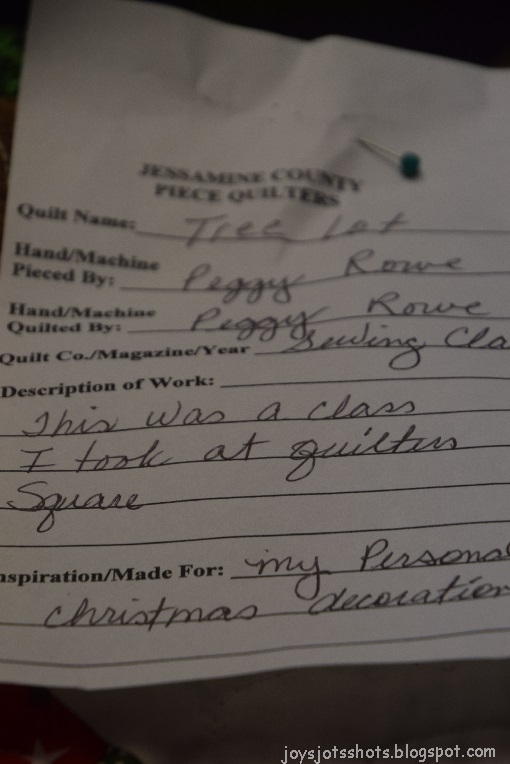 JESSAMINE COUNTY
PIECE QUILTERS
Quilt Name: Tree lot
Hand/Machine
Pieced By: Peggy Rowe
Hand/Machine
Quilted By: Peggy Rowe
Quilt Co./Magazine/Year Sewing Cla
Description of Work:
This was a class
I took at quilters
Square
nspiration/Made For: my Personal
christmas decoration
joysjotsshots.blogspot.com